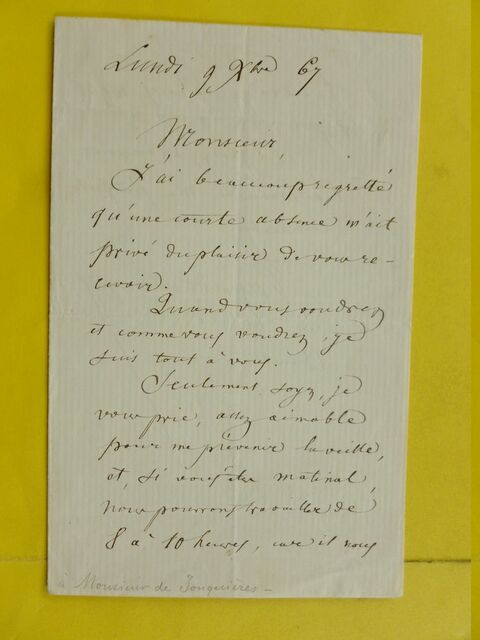 Lundi 9 Xbre 67
Monsieur,
J'ai beaucoup regretté
qu'une courte absence m'ait
privé du plaisir de vous re-
cevoir.
Quand vous voudrez
et comme vous voudrez, je
suis tout à vous.
Seulement soyez, je
vous prie, assez aimable
pour me prévenir la veille,
et, si vous êtes matinal,
nous pourrons travailler de
8 à 10 heures, car il nous
à Monsieur de Jonquières -